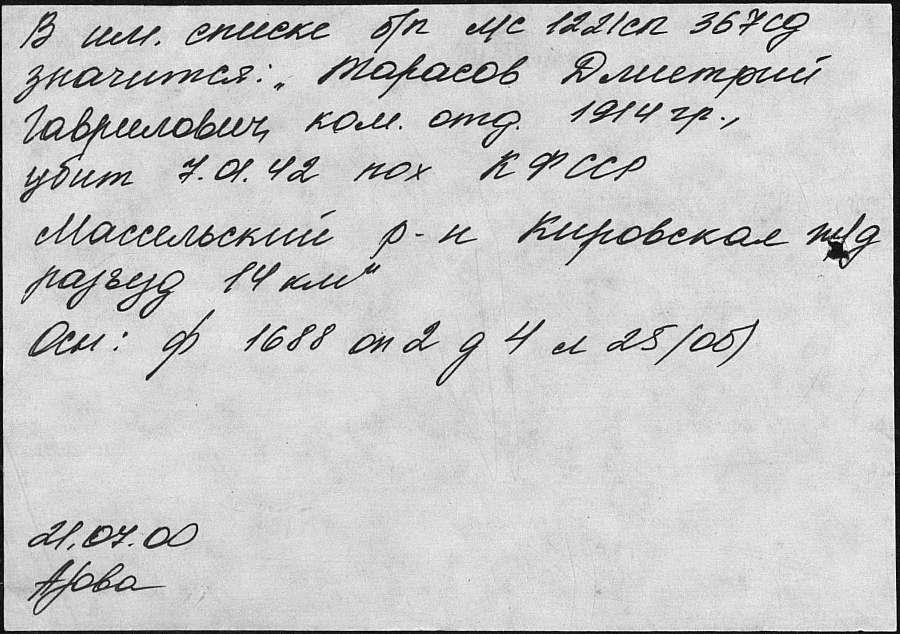 В им. списке б/п мс 1221сп 367сд
значится: „Тарасов Дмитрий
Гаврилович, ком. отд. 1914гр.,
убит 7.01.42 пох КФССР
Массельский р-н Кировская ж/д
разъезд 14 км“
Осн: ф 1688 оп 2 д 4 л 25 (об)
21.07.00